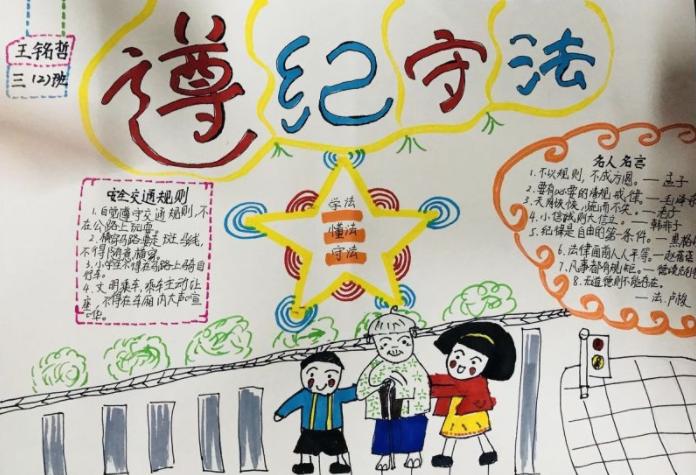 王铭哲
三(2)班
遵纪守法
学法
懂法
守法
安全交通规则
1.自觉遵守交通规则,不
在公路上玩耍。
2.横穿马路要走斑马线,
不得随意横穿。
3.小学生不得在马路上骑自
行车。
4.文明乘车,乘车主动让
座,不得在车厢内大声喧
哗。
名人名言
1.不以规则,不成方圆。——孟子
2.要有必要的清规戒律。——毛泽东
3.天网恢恢,疏而不失。——老子
4.小信诚则大信立。——韩非子
5.纪律是自由的第一条件。——黑格
6.法律面前人人平等。
7.凡事都有规矩。
8.无道德则不能存在。
——法.卢梭